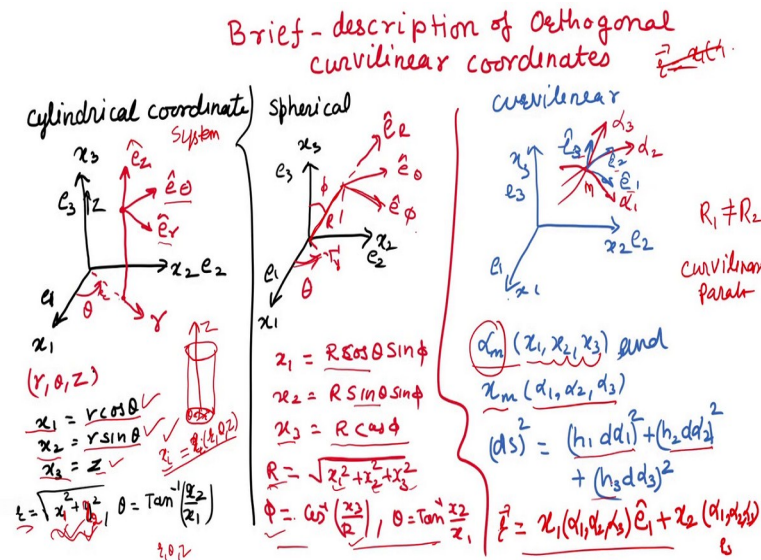 Brief-description of Orthogonal
curvilinear coordinates
cylindrical coordinate
System
x₃
ê_z
e₃ z
ê_θ
ê_r
x₂ e₂
e₁
θ
r
x₁
z
(r, θ, z)
x₁ = r cosθ
x₂ = r sinθ
x₃ = z
θ = Tan⁻¹(x₂/x₁)
r, θ, z
spherical
ê_R
x₃
e₃
ϕ
ê_θ
R
ê_ϕ
x₂
e₂
e₁
θ
x₁
x₁ = R cosθ Sinϕ
x₂ = R Sinθ sinϕ
x₃ = R cosϕ
R = √(x₁² + x₂² + x₃²)
ϕ = Cos⁻¹(x₃/R), θ = Tan⁻¹ x₂/x₁
curvilinear
α₃
ê₃
α₂
x₃
ê₂
e₃
ê₁
M
α₁
x₂ e₂
e₁
x₁
R₁ ≠ R₂
αₘ (x₁, x₂, x₃) and
xₘ (α₁, α₂, α₃)
(ds)² = (h₁dα₁)² + (h₂dα₂)²
+ (h₃dα₃)²
r⃗ = x₁(α₁,α₂,α₃) ê₁ + x₂ (α₁,α₂,α₃)